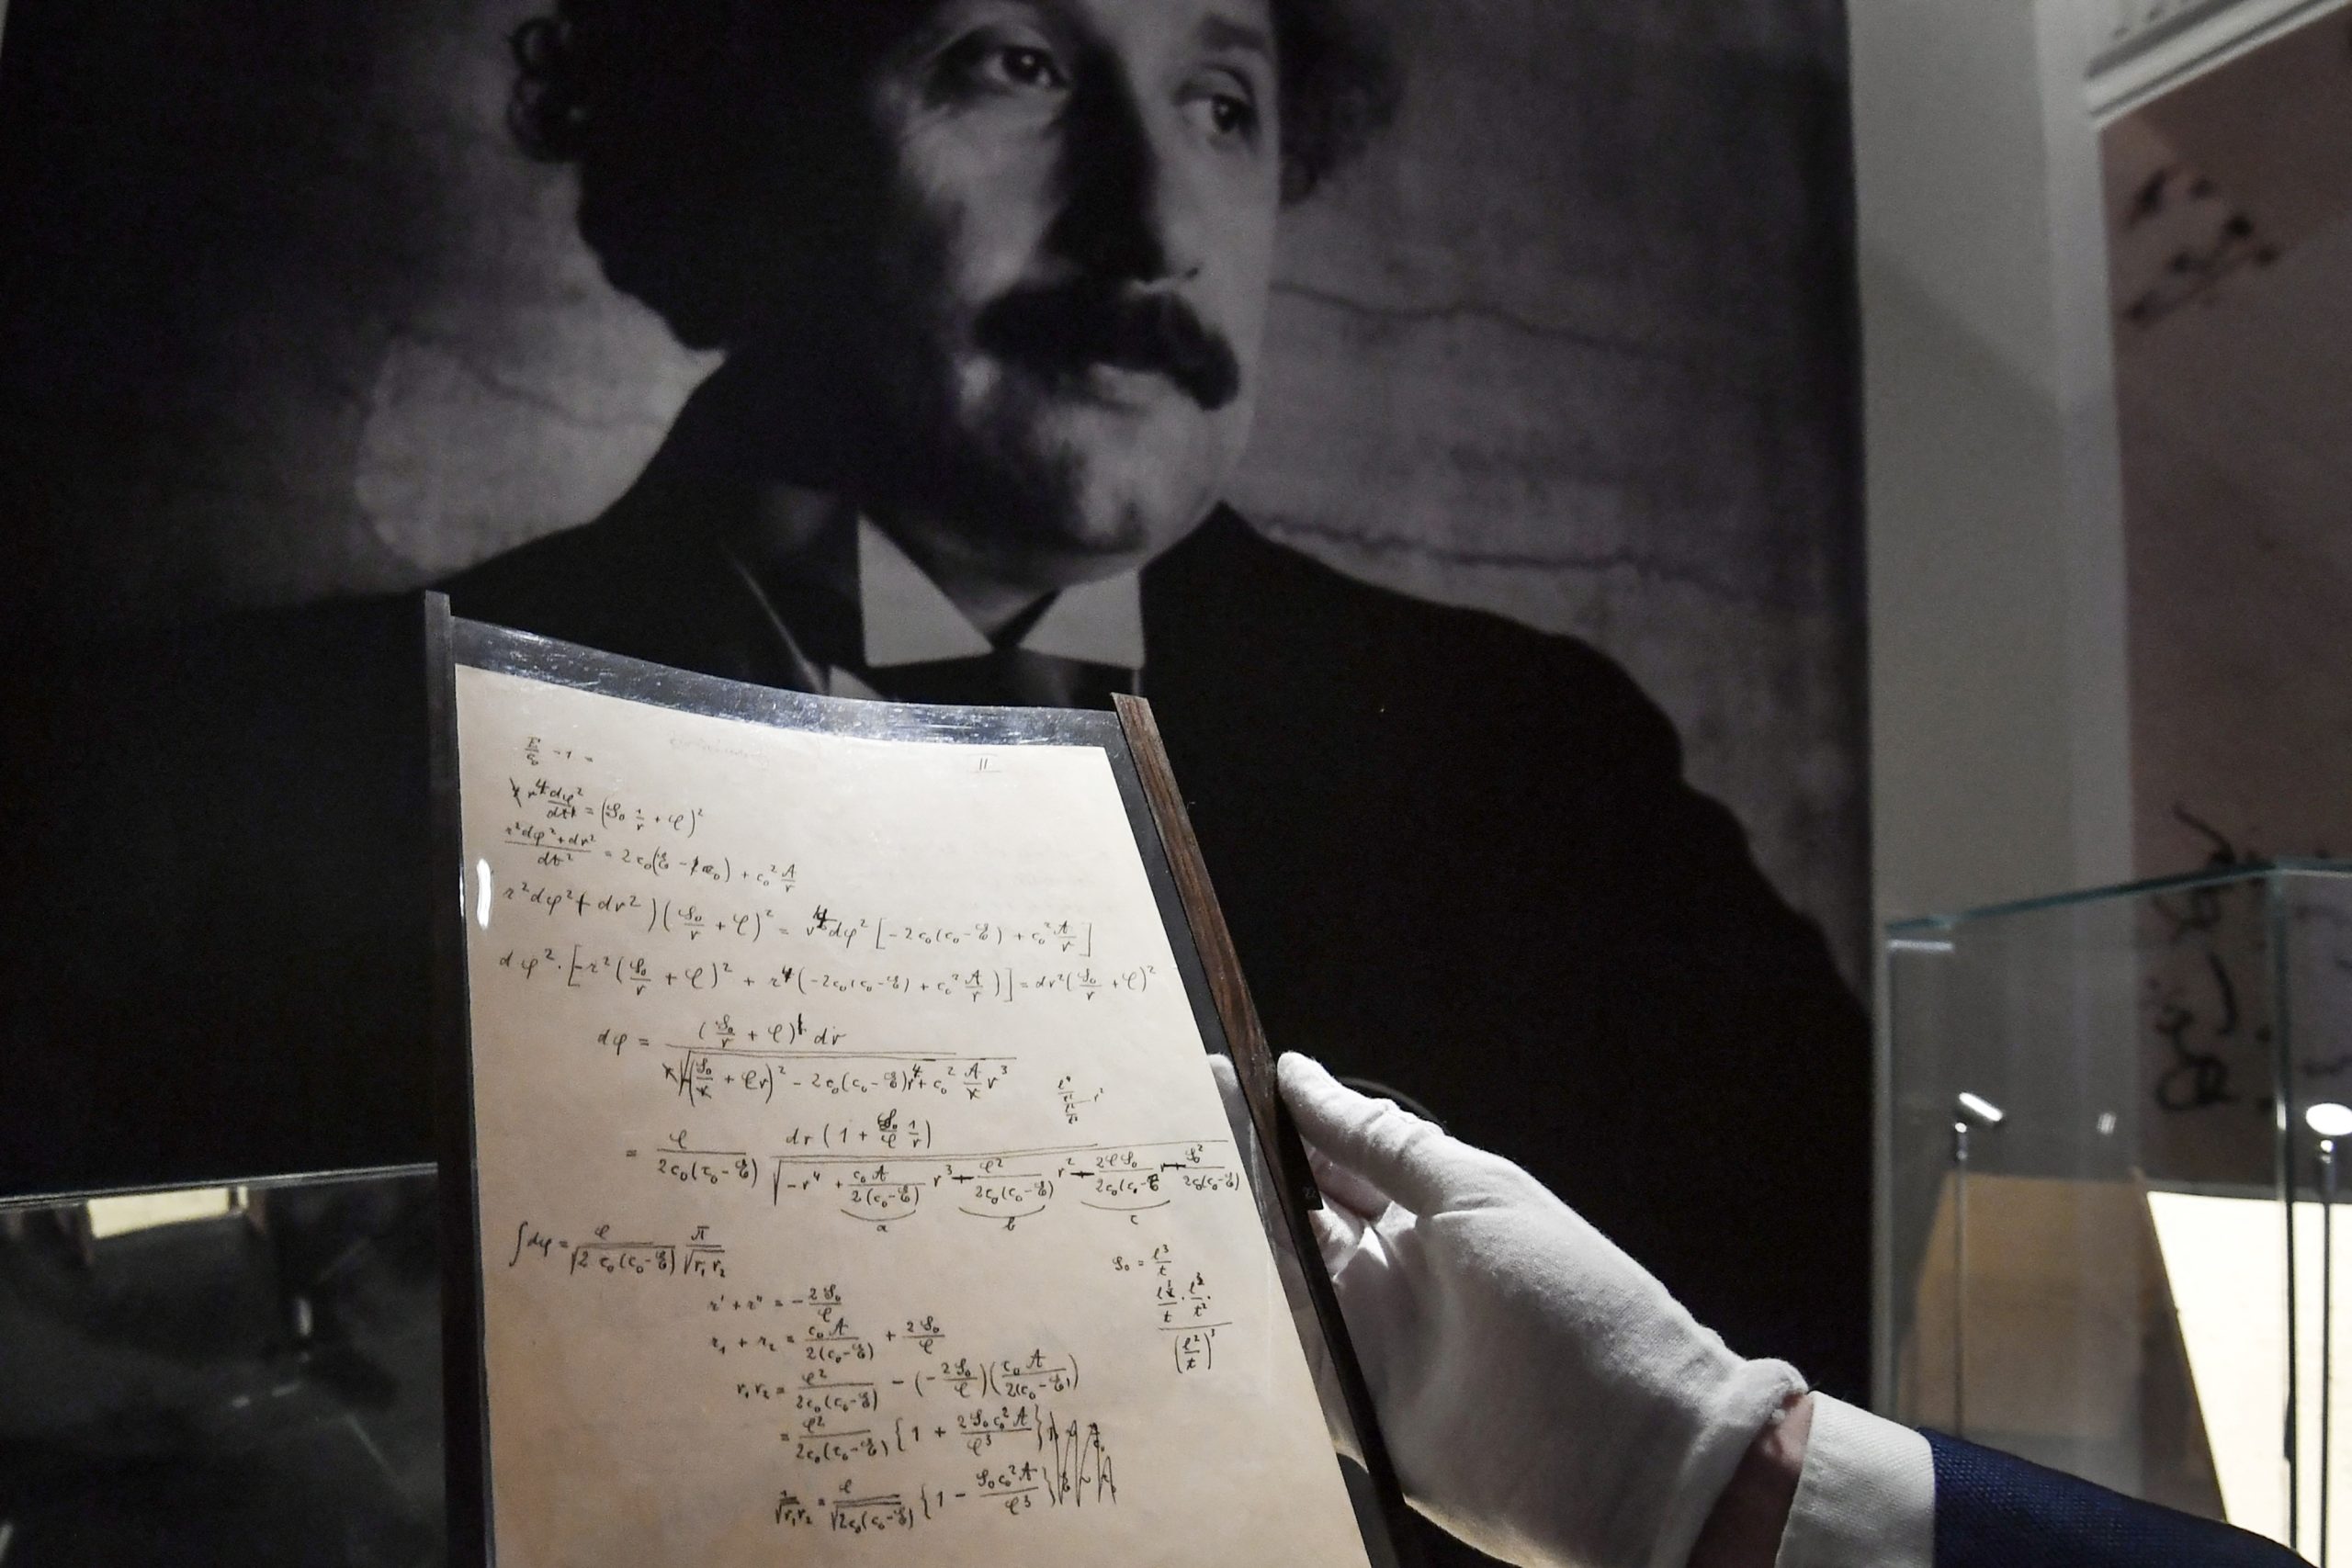 11
E/c₀ - 1 =
r⁴ dφ²/dt² = (S₀ 1/r + C)²
(r²dφ² + dr²)/dt² = 2c₀(E - c₀) + c₀² A/r
r²dφ² + dr²)(S₀/r + C)² = r⁴dφ² [-2c₀(c₀-E) + c₀² A/r]
dφ² · [-r²(S₀/r + C)² + r⁴(-2c₀(c₀-E) + c₀² A/r)] = dr²(S₀/r + C)²
dφ = (S₀/r + C) dr / √(-(S₀ + Cr)² - 2c₀(c₀-E)r⁴ + c₀² A r³)
= C/2c₀(c₀-E) dr(1 + S₀/C 1/r) / √(-r⁴ + c₀A/2(c₀-E) r³ - C²/2c₀(c₀-E) r² - 2CS₀/2c₀(c₀-E) r - S₀²/2c₀(c₀-E))
a b c
∫dφ = C/√(2c₀(c₀-E)) π/√(r₁r₂)
S₀ = l³/t
r' + r'' = - 2S₀/C
r₁ + r₂ = c₀A/2(c₀-E) + 2S₀/C
(l²/t)³
r₁r₂ = C²/2c₀(c₀-E) - (-2S₀/C)(c₀A/2(c₀-E))
= C²/2c₀(c₀-E) {1 + 2S₀c₀²A/C³}
1/√(r₁r₂) = C/√(2c₀(c₀-E)) {1 - S₀c₀²A/C³}